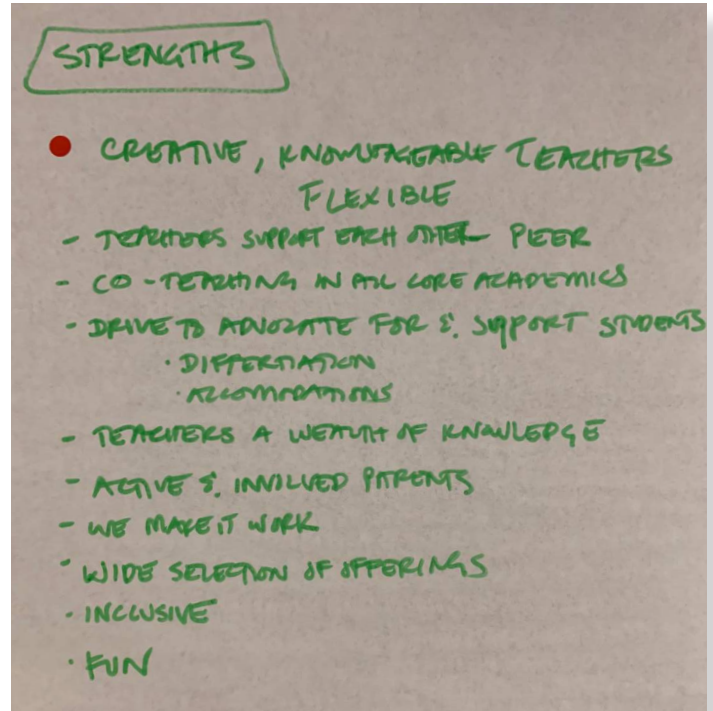 STRENGTHS
CREATIVE, KNOWLEDGEABLE TEACHERS
FLEXIBLE
- TEACHERS SUPPORT EACH OTHER PEER
- CO-TEACHING IN ALL CORE ACADEMICS
- DRIVE TO ADVOCATE FOR & SUPPORT STUDENTS
· DIFFERTIATION
· ACCOMODATIONS
- TEACHERS A WEALTH OF KNOWLEDGE
- ACTIVE & INVOLVED PARENTS
- WE MAKE IT WORK
- WIDE SELECTION OF OFFERINGS
- INCLUSIVE
· FUN